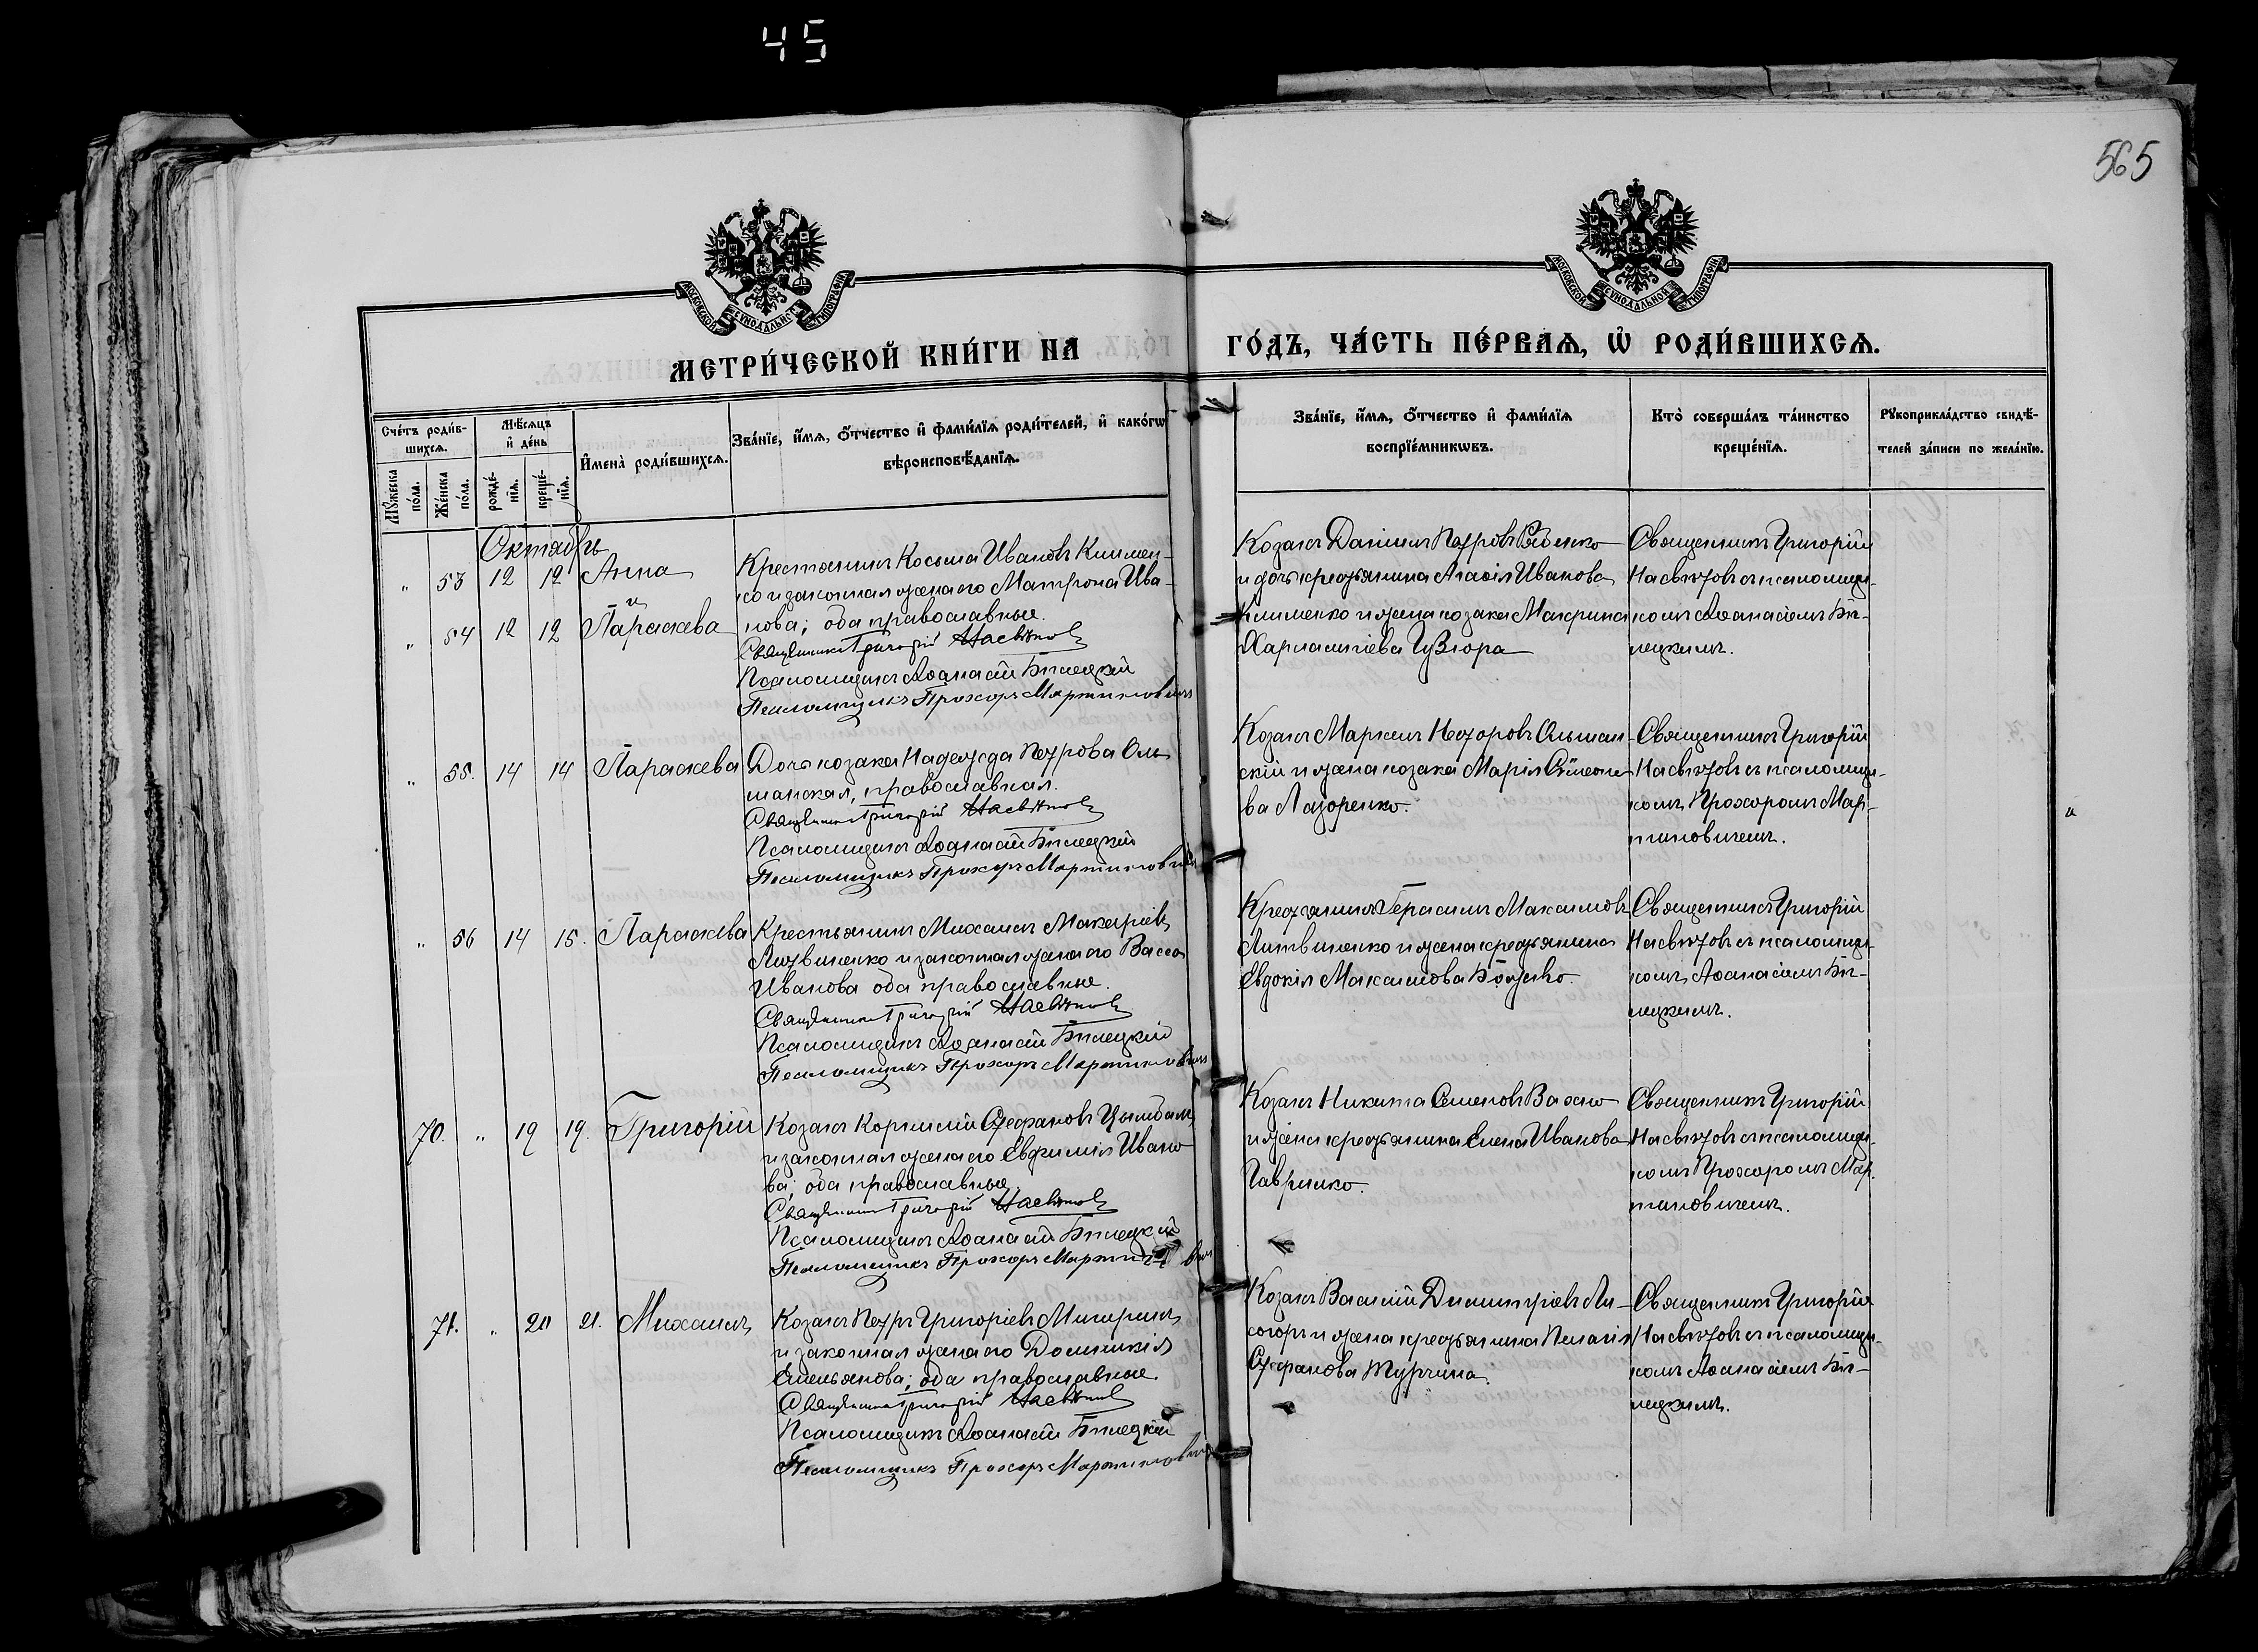 45
565
МОСКОВСКОЙ СѴНОДАЛЬНОЙ ТИПОГРАФІИ
МОСКОВСКОЙ СѴНОДАЛЬНОЙ ТИПОГРАФІИ
МЕТРИ́ЧЕСКОЙ КНИ́ГИ НА
ГО́ДЪ, ЧА́СТЬ ПЕ́РВАѦ, Ѡ҆ РОДИ́ВШИХСѦ.
Сче́тъ роди́в-
шихсѧ.
Мѹ́жеска
по́ла.
Же́нска
по́ла.
Мѣ́сѧцъ
и҆ де́нь
рожде́-
нїѧ.
креще́-
нїѧ.
И҆мена̀ роди́вшихсѧ.
Зва́нїе, и҆́мѧ, ѻ҆́тчество и҆ фами́лїѧ роди́телей, и҆ како́гѡ
вѣроисповѣ́данїѧ.
Зва́нїе, и҆́мѧ, ѻ҆́тчество и҆ фами́лїѧ
воспрїе́мникѡвъ.
Кто̀ соверша́лъ та́инство
креще́нїѧ.
Рѹкоприкла́дство свидѣ́-
телей за́писи по жела́нїю.
Октябрь
" 53 12 12 Анна
и
" 54 12 12 Параскева
Крестьянинъ Косьма Ивановъ Климен-
ко и законная жена его Матрона Ива-
нова; оба православные.
Священникъ Григорій Насвѣтовъ
Псаломщикъ Аѳанасій Бѣлецкій
Псаломщикъ Прохоръ Мартиновичъ
Козакъ Даніилъ Петровъ
и дочь крестьянина Агаѳія Иванова
Клименко и жена козака Макрина
Харлампіева
Священникъ Григорій
Насвѣтовъ съ псаломщи-
комъ Аѳанасіемъ Бѣ-
лецкимъ.
" 55. 14 14 Параскева
Дочь козака Надежда Петрова Оль-
шанская, православная.
Священникъ Григорій Насвѣтовъ
Псаломщикъ Аѳанасій Бѣлецкій
Псаломщикъ Прохоръ Мартиновичъ
Козакъ Маркелъ Несторовъ Ольшан-
скій и жена козака Марія Симеоно-
ва Лазоренко.
Священникъ Григорій
Насвѣтовъ съ псаломщи-
комъ Прохоромъ Мар-
тиновичемъ.
" 56 14 15. Параскева
Крестьянинъ Михаилъ Макаріевъ
Литвиненко и законная жена его Васса
Иванова оба православные.
Священникъ Григорій Насвѣтовъ
Псаломщикъ Аѳанасій Бѣлецкій
Псаломщикъ Прохоръ Мартиновичъ
Крестьянинъ Герасимъ Максимовъ
Литвиненко и жена крестьянина
Евдокія Максимова
Священникъ Григорій
Насвѣтовъ съ псаломщи-
комъ Аѳанасіемъ Бѣ-
лецкимъ.
70. " 19 19. Григорій
Козакъ Корнилій Стефановъ Цымбалъ
и законная жена его Евфимія Ивано-
ва; оба православные.
Священникъ Григорій Насвѣтовъ
Псаломщикъ Аѳанасій Бѣлецкій
Псаломщикъ Прохоръ Мартиновичъ
Козакъ Никита Семеновъ
и жена крестьянина Елена Иванова
Гавриленко.
Священникъ Григорій
Насвѣтовъ съ псаломщи-
комъ Прохоромъ Мар-
тиновичемъ.
71. " 20 21. Михаилъ
Козакъ Петръ Григоріевъ
и законная жена его Домникія
Емельянова; оба православные.
Священникъ Григорій Насвѣтовъ
Псаломщикъ Аѳанасій Бѣлецкій
Псаломщикъ Прохоръ Мартиновичъ
Козакъ Василій Димитріевъ Ли-
согоръ и жена крестьянина Пелагія
Стефанова Турчина.
Священникъ Григорій
Насвѣтовъ съ псаломщи-
комъ Аѳанасіемъ Бѣ-
лецкимъ.